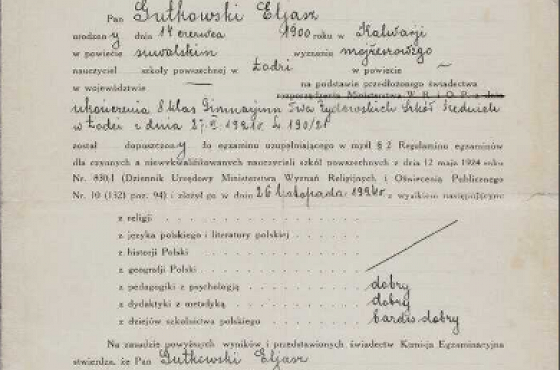 Pan Gutkowski Eljasz
urodzony dnia 14 czerwca 1900 roku w Kalwarji
w powiecie suwalskim wyznania mojżeszowego
nauczyciel szkoły powszechnej w Łodzi w powiecie —
w województwie — na podstawie przedłożonego świadectwa
rozporządzenia Ministerstwa W. R. i O. P. z dnia
ukończenia 8 klas Gimnazjum T-wa Żydowskich Szkół Średnich
w Łodzi z dnia 27. 1921 r. L 190/21
został dopuszczony do egzaminu uzupełniającego w myśl § 2 Regulaminu egzaminów
dla czynnych a niewykwalifikowanych nauczycieli szkół powszechnych z dnia 12 maja 1924 roku
Nr. 830,1 (Dziennik Urzędowy Ministerstwa Wyznań Religijnych i Oświecenia Publicznego
Nr. 10 (132) poz. 94) i złożył go w dniu 26 listopada 1924 r. z wynikiem następującym:
z religji
z języka polskiego i literatury polskiej
z historji Polski
z geografji Polski
z pedagogiki z psychologją dobry
z dydaktyki z metodyką dobry
z dziejów szkolnictwa polskiego bardzo dobry
Na zasadzie powyższych wyników i przedstawionych świadectw Komisja Egzaminacyjna
stwierdza, że Pan Gutkowski Eljasz